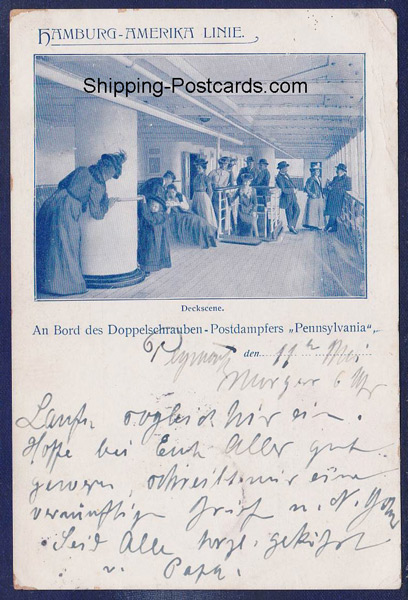 HAMBURG-AMERIKA LINIE.
Shipping-Postcards.com
Deckscene.
An Bord des Doppelschrauben-Postdampfers „Pennsylvania“,
Plymouth den 11ten Mai
Morgen 6 Uhr
sogleich hier ein.
Hoffe bei Euch Aller gut
schreibt mir eine
vernünftige Brief n. N. York
Seid Alle herzl. gegrüßt
v. Papa.